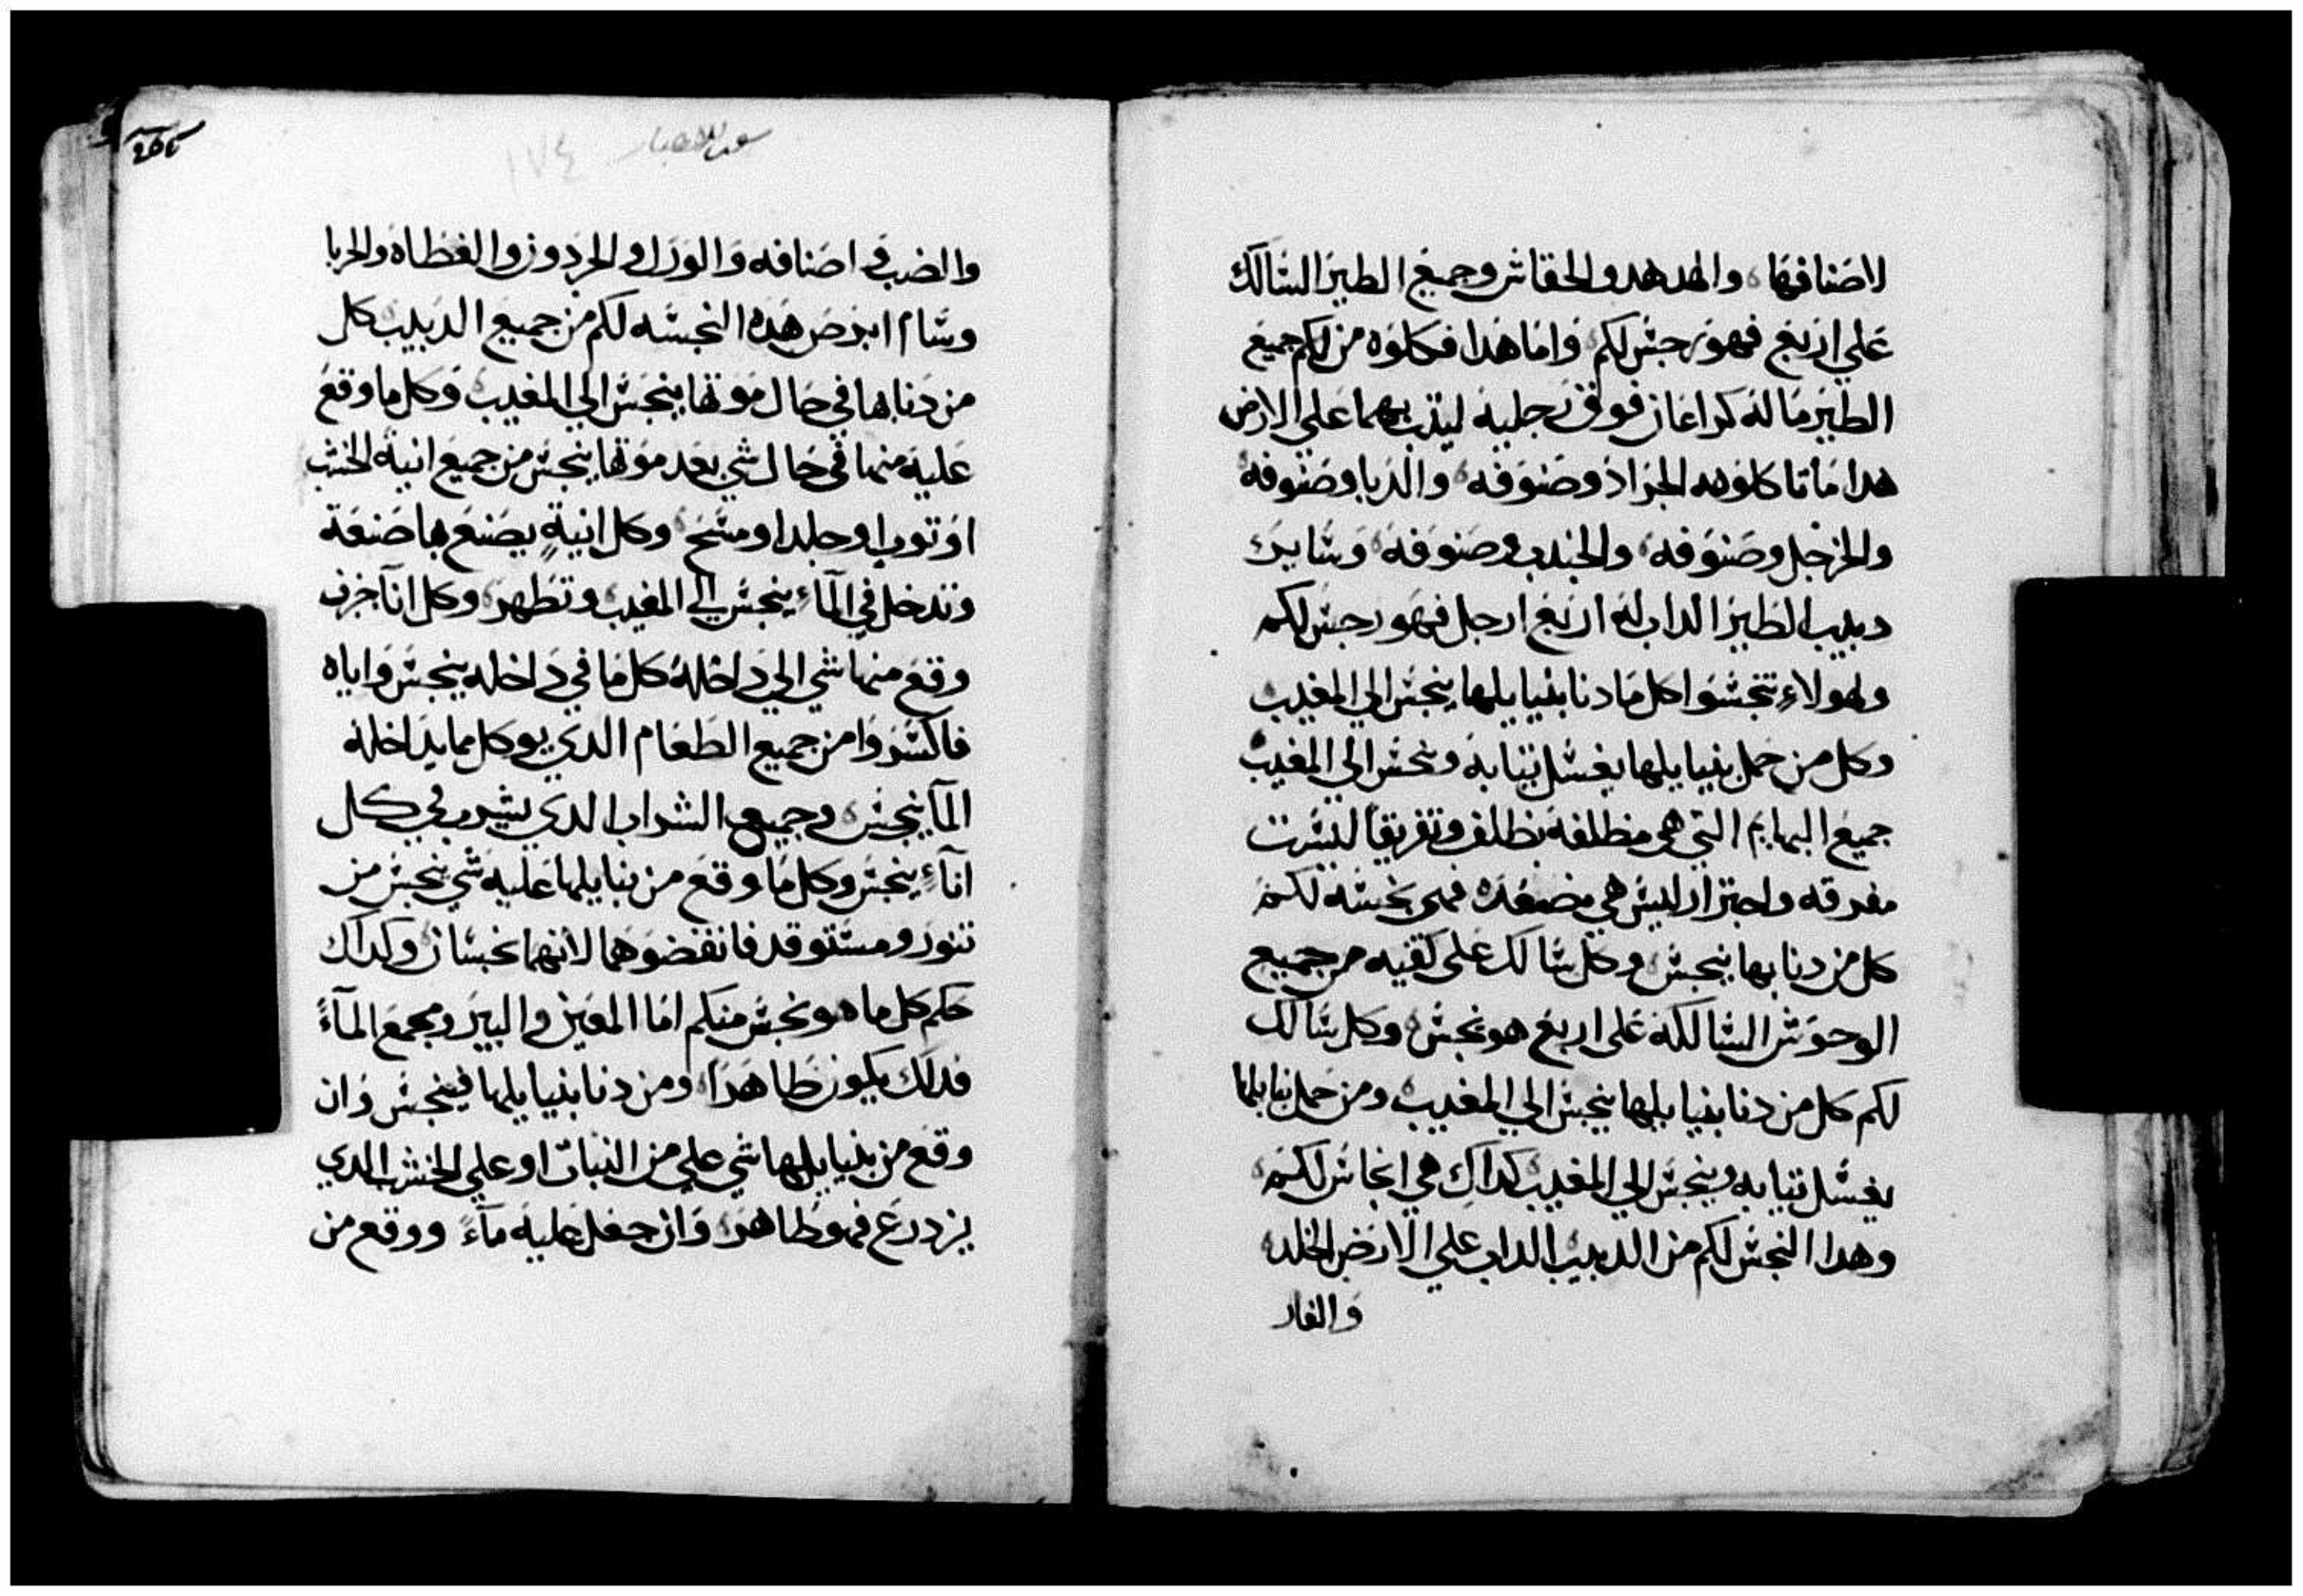 لاصنافها والهدهد والخفاش وجميع الطير السالك
علي اربع فهو رجس لكم واما هدا فكلوه من لكم جميع
الطير ما له كراعان فوق رجليه ليتب بهما علي الارض
هدا ما تاكلوه الجراد وصنوفه والدبا وصنوفه
والحرجل وصنوفه والجندب وصنوفه وساير
دبيب الطير الداب له اربع ارجل فهو رجس لكم
ولهولاء تتجسوا كل ما دنا بنيايلها ينجس الي المغيب
وكل من حمل بنيايلها يغسل تيابه ونجس الي المغيب
جميع البهايم التي هي مظلفة بظلف وتفريقا ليست
مفرقه واجترار ليس هي مصعده فهي نجسه لكم
كل من دنا بها ينجس وكل سالك علي كفيه من جميع
الوحوش السالكة علي اربع هو نجس وكل سالك
لكم كل من دنا بنيايلها ينجس الي المغيب ومن حمل نيايلها
يغسل تيابه وينجس الي المغيب كداك هي انجاس لكم
وهدا النجس لكم من الدبيب الداب علي الارض الخلد
والفار
سفر الاحبار ١٧٤
والضب واصنافه والورل والحردون والعظاه والحربا
وسام ابرص هده النجسه لكم من جميع الدبيب كل
من دنا بها في حال موتها ينجس الي المغيب وكل ما وقع
عليه منها في حال شي بعد موتها ينجس من جميع انية الخشب
او توب او جلد او مسح وكل انية يصنع بها صنعة
وتدخل في المآء ينجس الي المغيب وتطهر وكل انآ خزف
وقع منها شي الي داخله كل ما في داخله ينجس واياه
فاكسروا من جميع الطعام الدي يوكل مما يداخله
المآ ينجس وجميع الشراب الدي يشرب في كل
انآء ينجس وكل ما وقع من نيايلها عليه شي ينجس من
تنور ومستوقد فانفضوهما لانهما نجسان وكداك
حكم كل ما هو نجس منكم اما المعين والبير ومجمع المآء
فدلك يكون طاهرا ومن دنا بنيايلها فينجس وان
وقع من بنيايلها شي علي من النبات او علي الخشب الدي
يزدرع فهو طاهر وان جعل عليه مآء ووقع من